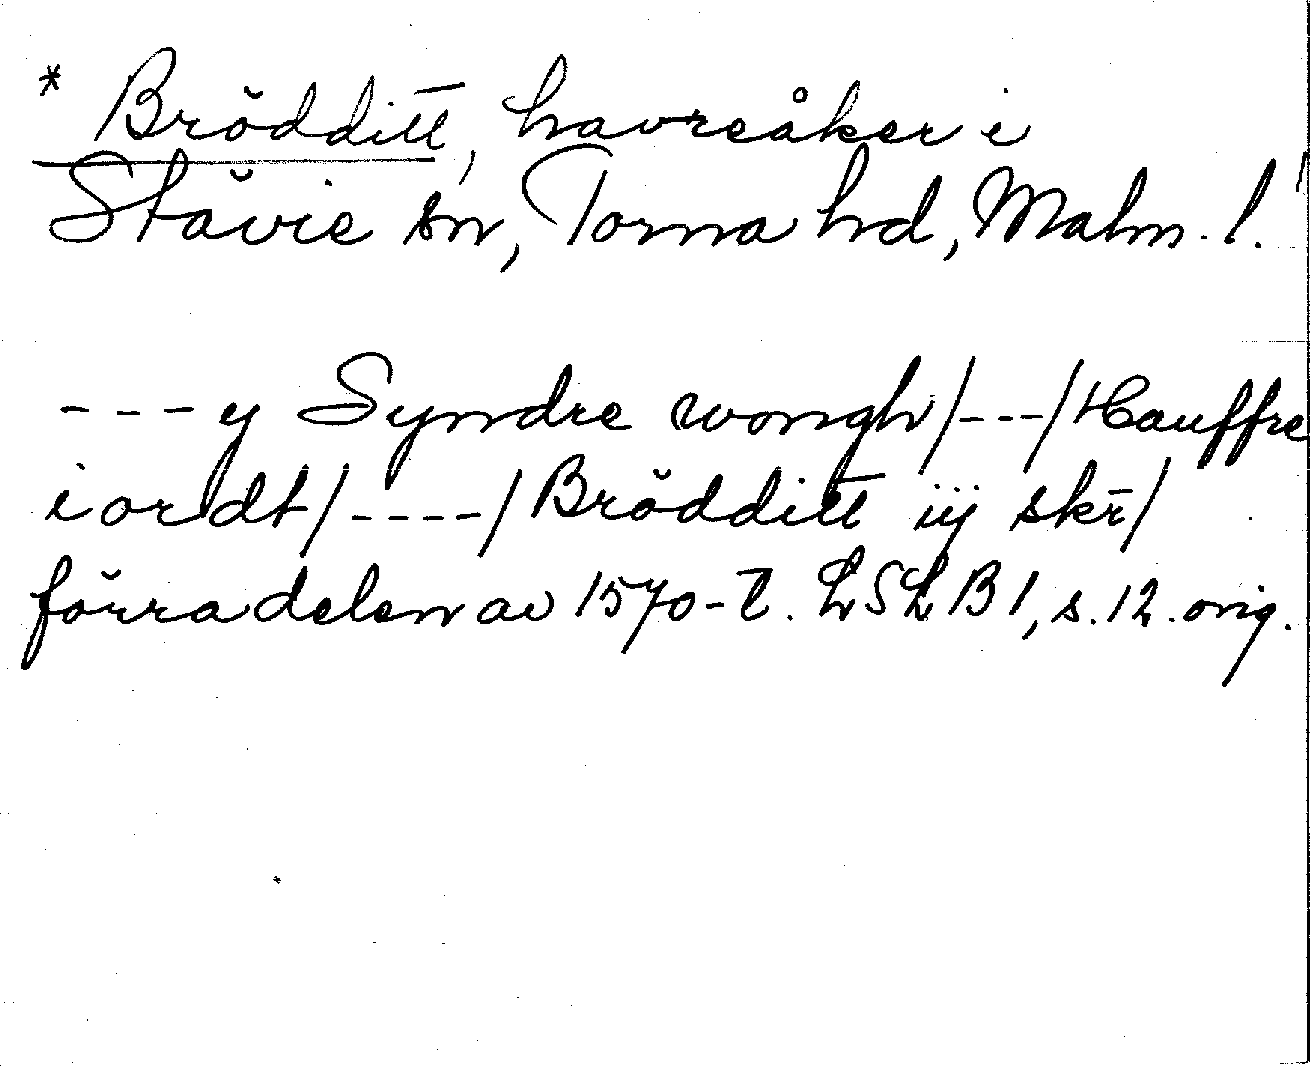 * Brödditt, havreåker i
Stävie sn, Torna hd, Malm. l.
---y Syndre wongh/---/Hauffre
iordt/----/Brödditt iij skr̄/
förra delen av 1570-t. LSLB1, s. 12. orig.